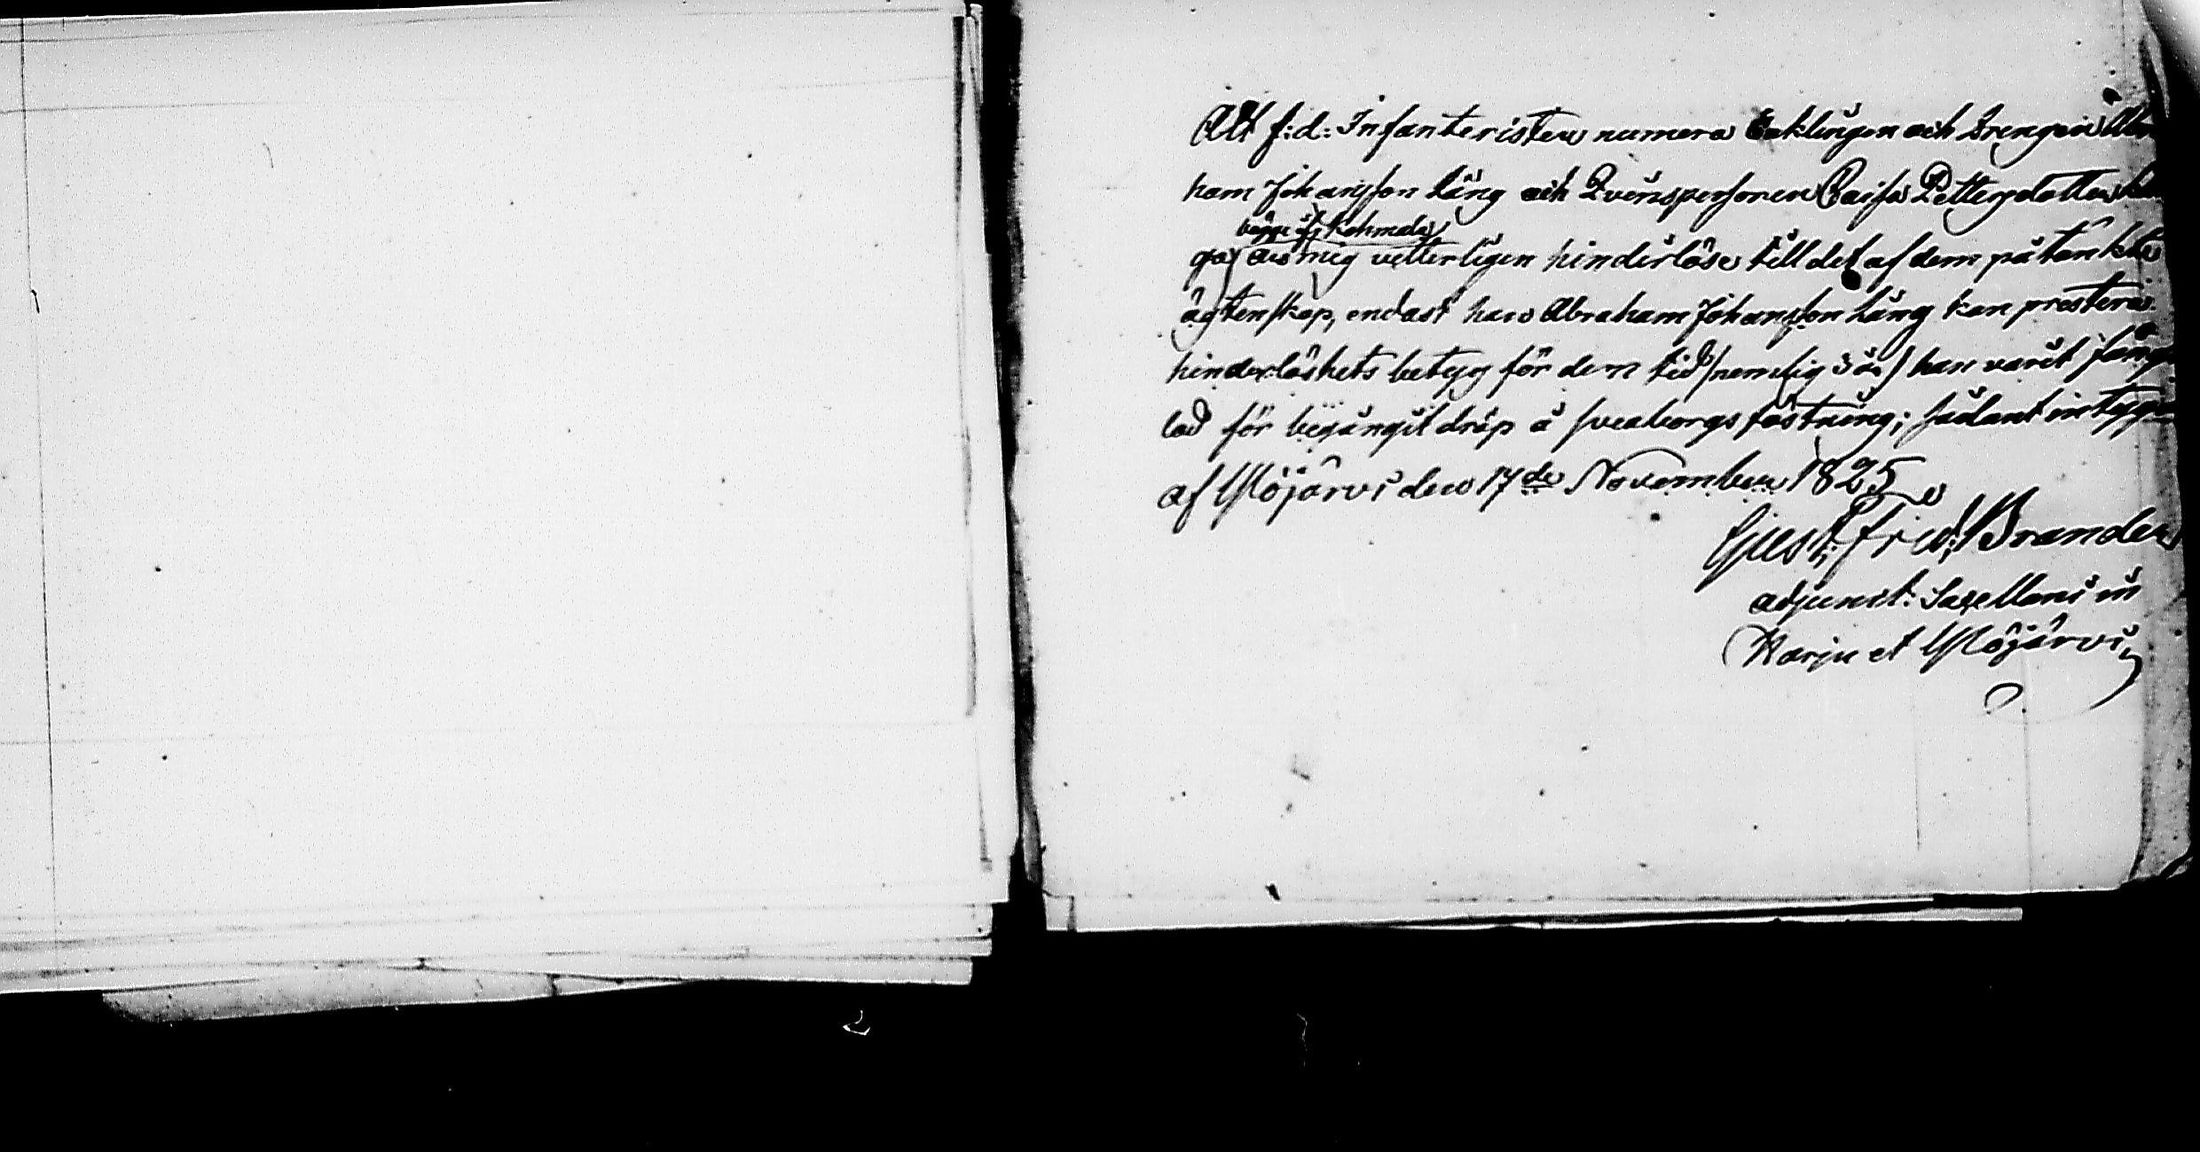 Att f:d: Infanteristen numera Enklingen och Drengen Abra
ham Johansson Läng och Qvinspersonen Caisa Pettersdotter
begge
ga, äro mig vetterligen hinderlöse till det af dem påtänkte
ägtenskap, endast han Abraham Johansson Läng kan prestera
hinderlöshets betyg för dem tid /nemlig 3 år/ han varit fäng
lad för begångit dråp å Sveaborgs fästning; sådant intygar
af Ylöjärvi den 17de November 1825
Gust: Fried: Brander
adjunct: Sacellani in
Harju et Ylöjärvi